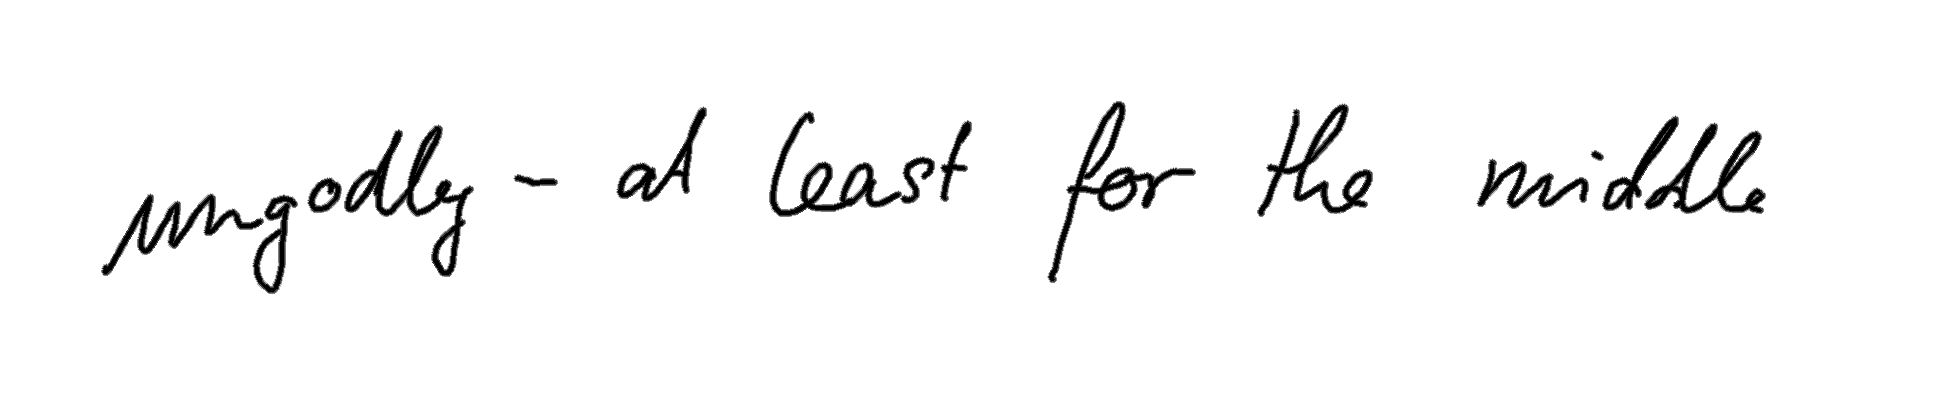 ungodly - at least for the middle